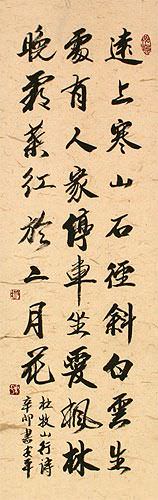 遠上寒山石徑斜白雲生
處有人家停車坐愛楓林
晚霜葉紅於二月花
杜牧山行诗
辛卯書